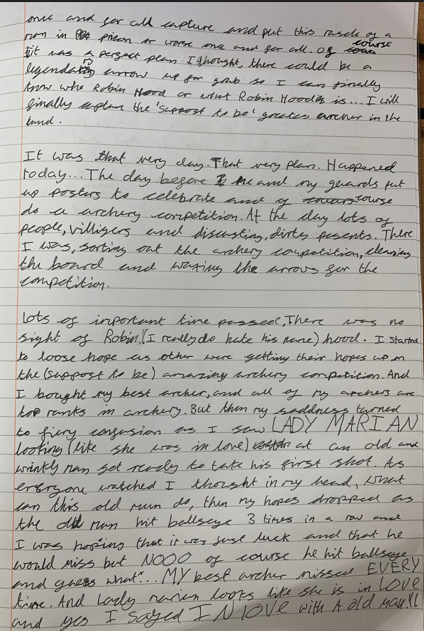 once and for all capture and put this rascle of a
man in prison or worse one and for all. Of course
it was a perfect plan I thought, there could be a
legendary arrow up for grab so I can finally
know who Robin Hood or what Robin Hoods is... I will
finally capture the 'suppost to be' greates archer in the
land.
It was that very day. That very plan. Happened
today... The day before me and my guards put
up posters to celebrate and of course
do a archery competition. At the day lots of
people, villigers and discusting, dirty pesents. There
I was, sorting out the archery competition, cleaning
the board and waxing the arrows for the
competition.
Lots of important time passed, There was no
sight of Robin (I really do hate his name) hood. I started
to loose hope as other were getting their hopes up on
the (suppost to be) amazing archery competition. And
I bought my best archer, and all of my archers are
top ranks in archery. But then my saddness turned
to firey confusion as I saw LADY MARIAN
looking (like she was in love) at an old and
wrinkly man get ready to take his first shot. As
everyone watched I thought in my head, what
can this old man do, then my hopes dropped as
the old man hit ballseye 3 times in a row and
I was hoping that it was just luck and that he
would miss but NOOO of course he hit ballseye
and guess what... MY best archer missed EVERY
time. And Lady marian looks like she is in LOVE
and yes I sayed IN lOVE with A old MAN!!